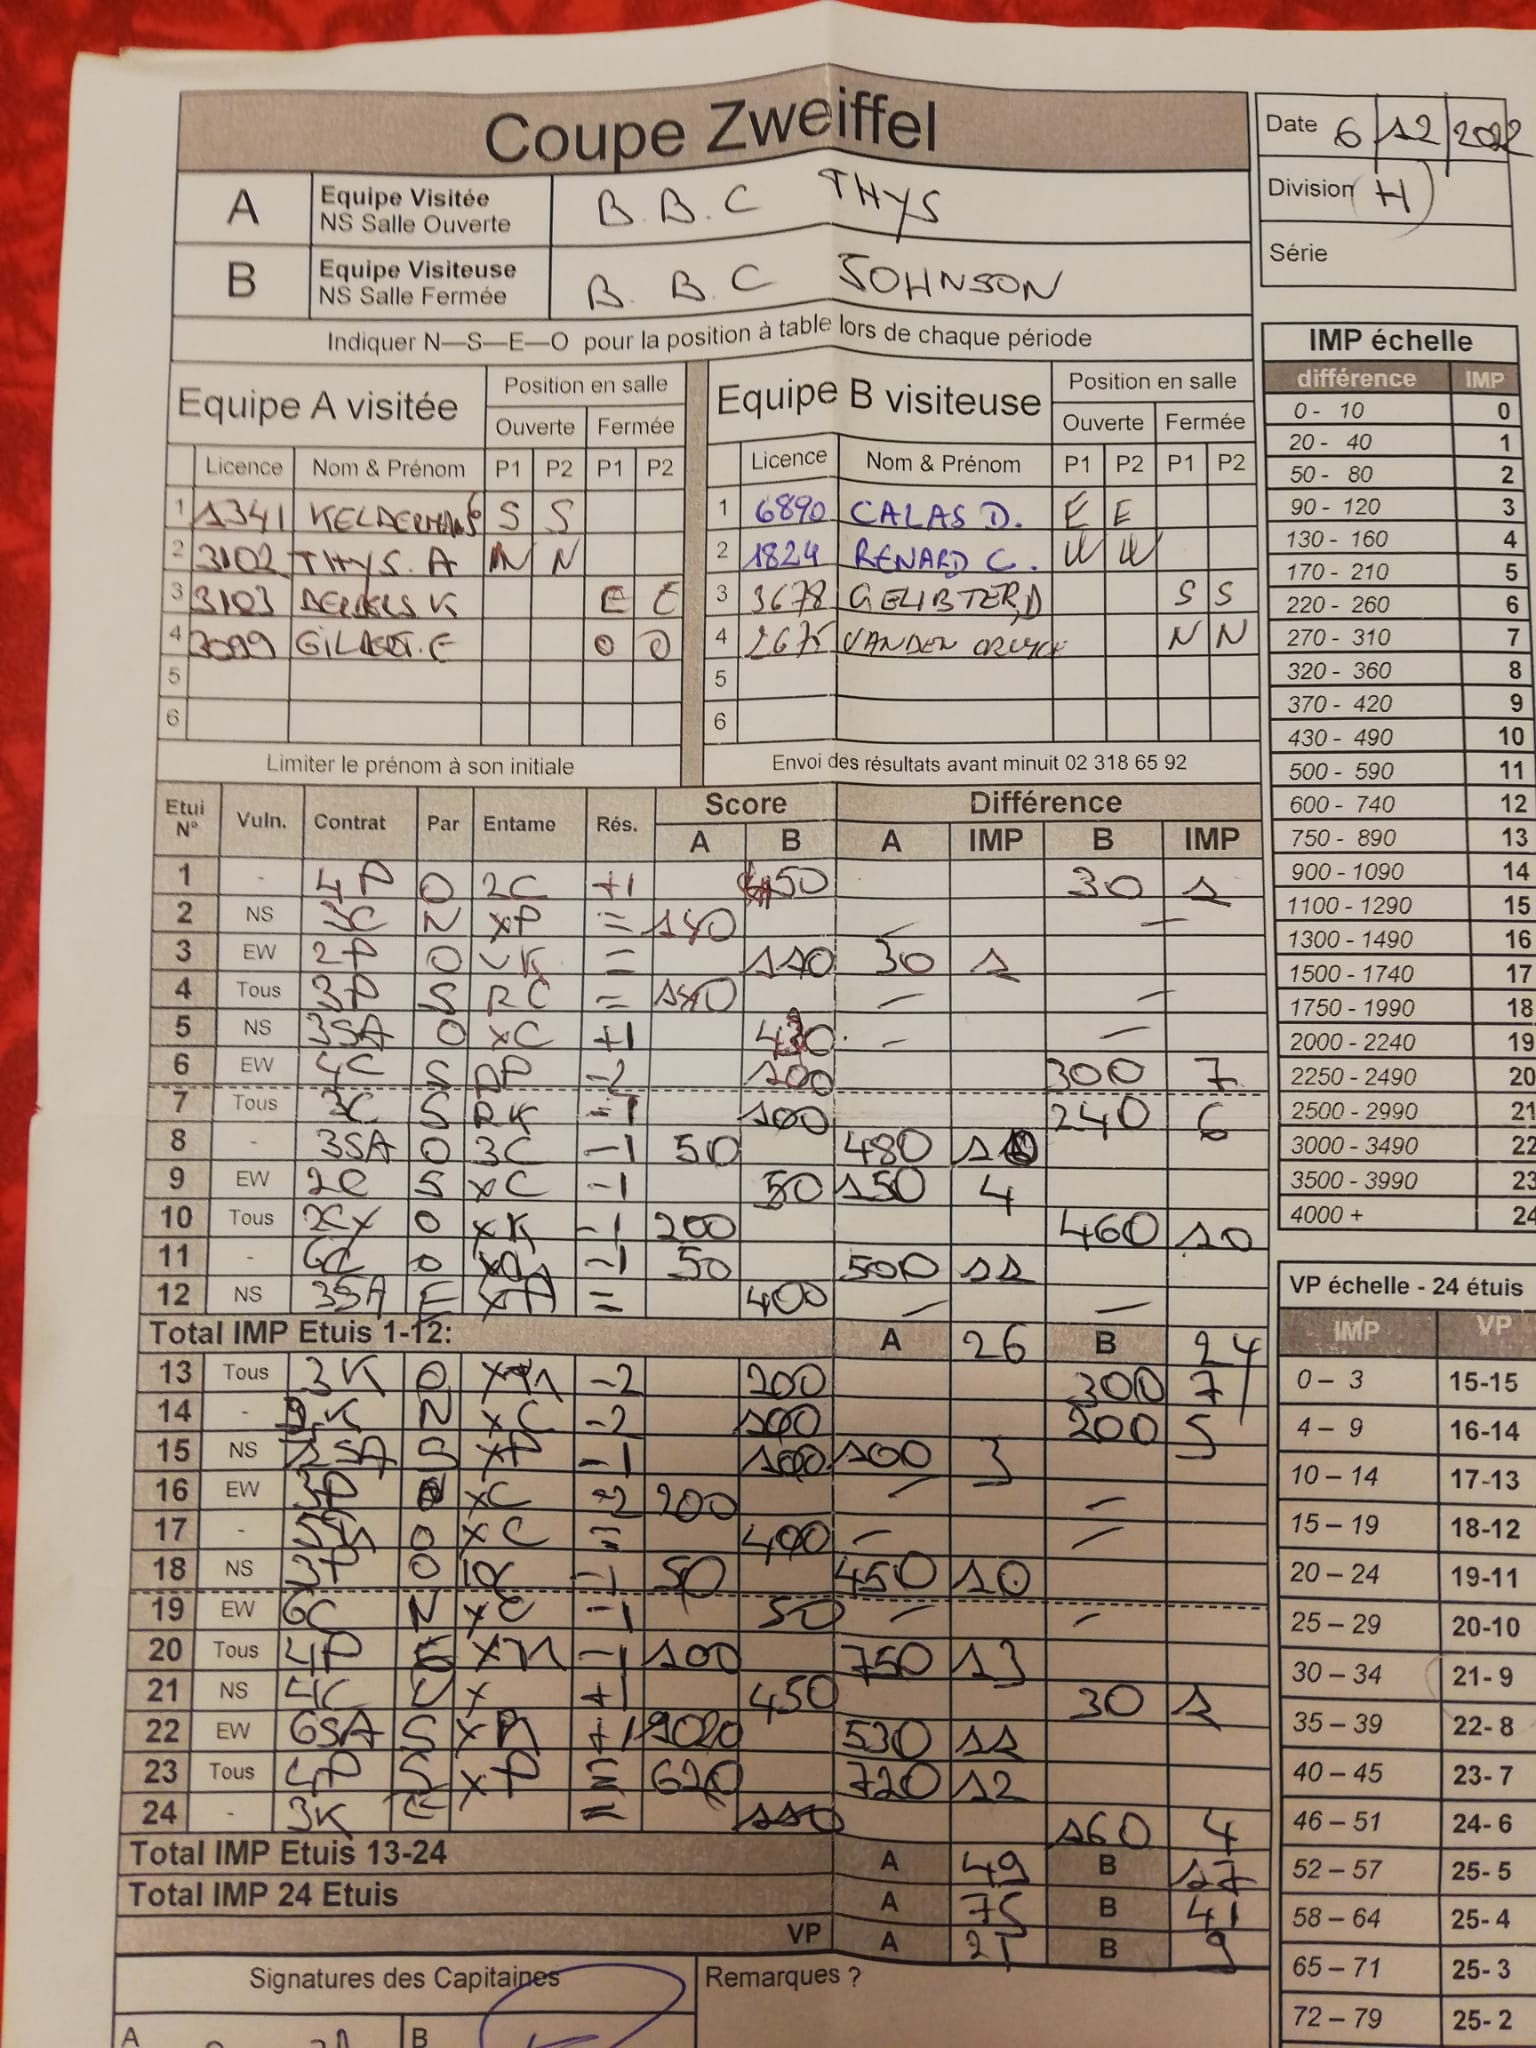 Coupe Zweiffel
Date 6 12 2022
Division H
Série
A Equipe Visitée B. B. C THYS
NS Salle Ouverte
B Equipe Visiteuse B. B. C JOHNSON
NS Salle Fermée
Indiquer N—S—E—O pour la position à table lors de chaque période
Equipe A visitée Position en salle
Ouverte Fermée
Licence Nom & Prénom P1 P2 P1 P2
1 1341 S S
2 3102 THYS. A N N
3 3103 K E E
4 3099 O O
5
6
Limiter le prénom à son initiale
Equipe B visiteuse Position en salle
Ouverte Fermée
Licence Nom & Prénom P1 P2 P1 P2
1 6890 CALAS D. E E
2 1824 RENARD C. W W
3 3678 GELIBTER,D S S
4 2675 VANDEN N N
5
6
Envoi des résultats avant minuit 02 318 65 92
Etui N° Vuln. Contrat Par Entame Rés. Score Différence
A B A IMP B IMP
1 - 4P O 2C +1 450 30 1
2 NS 3C N xP = 140 — —
3 EW 2P O = 110 30 1
4 Tous 3P S RC = 140 — —
5 NS 3SA O xC +1 430 — —
6 EW 4C S -2 100 300 7
7 Tous 3C S RK -1 100 240 6
8 - 3SA O 3C -1 50 480 10
9 EW 2C S xC -1 50 150 4
10 Tous 2Cx O xK -1 200 460 10
11 - 6C O -1 50 500 11
12 NS 3SA E = 400 — —
Total IMP Etuis 1-12: A 26 B 24
13 Tous 3K O -2 200 300 7
14 - K N xC -2 100 200 5
15 NS 1SA S xP -1 100 100 3
16 EW 3P xC -2 200 — —
17 - O xC = 400 — —
18 NS 3P O -1 50 450 10
19 EW 6C N xC -1 50 — —
20 Tous 4P E -1 100 750 13
21 NS 4C x +1 450 30 1
22 EW 6SA S +1 1020 530 11
23 Tous 4P S xP = 620 720 12
24 - 3K E = 110 160 4
Total IMP Etuis 13-24 A 49 B 17
Total IMP 24 Etuis A 75 B 41
VP A 21 B 9
Signatures des Capitaines Remarques ?
A B
IMP échelle
différence IMP
0 - 10 0
20 - 40 1
50 - 80 2
90 - 120 3
130 - 160 4
170 - 210 5
220 - 260 6
270 - 310 7
320 - 360 8
370 - 420 9
430 - 490 10
500 - 590 11
600 - 740 12
750 - 890 13
900 - 1090 14
1100 - 1290 15
1300 - 1490 16
1500 - 1740 17
1750 - 1990 18
2000 - 2240 19
2250 - 2490 20
2500 - 2990 21
3000 - 3490 22
3500 - 3990 23
4000 + 24
VP échelle - 24 étuis
IMP VP
0 – 3 15-15
4 – 9 16-14
10 – 14 17-13
15 – 19 18-12
20 – 24 19-11
25 – 29 20-10
30 – 34 21- 9
35 – 39 22- 8
40 – 45 23- 7
46 – 51 24- 6
52 – 57 25- 5
58 – 64 25- 4
65 – 71 25- 3
72 – 79 25- 2